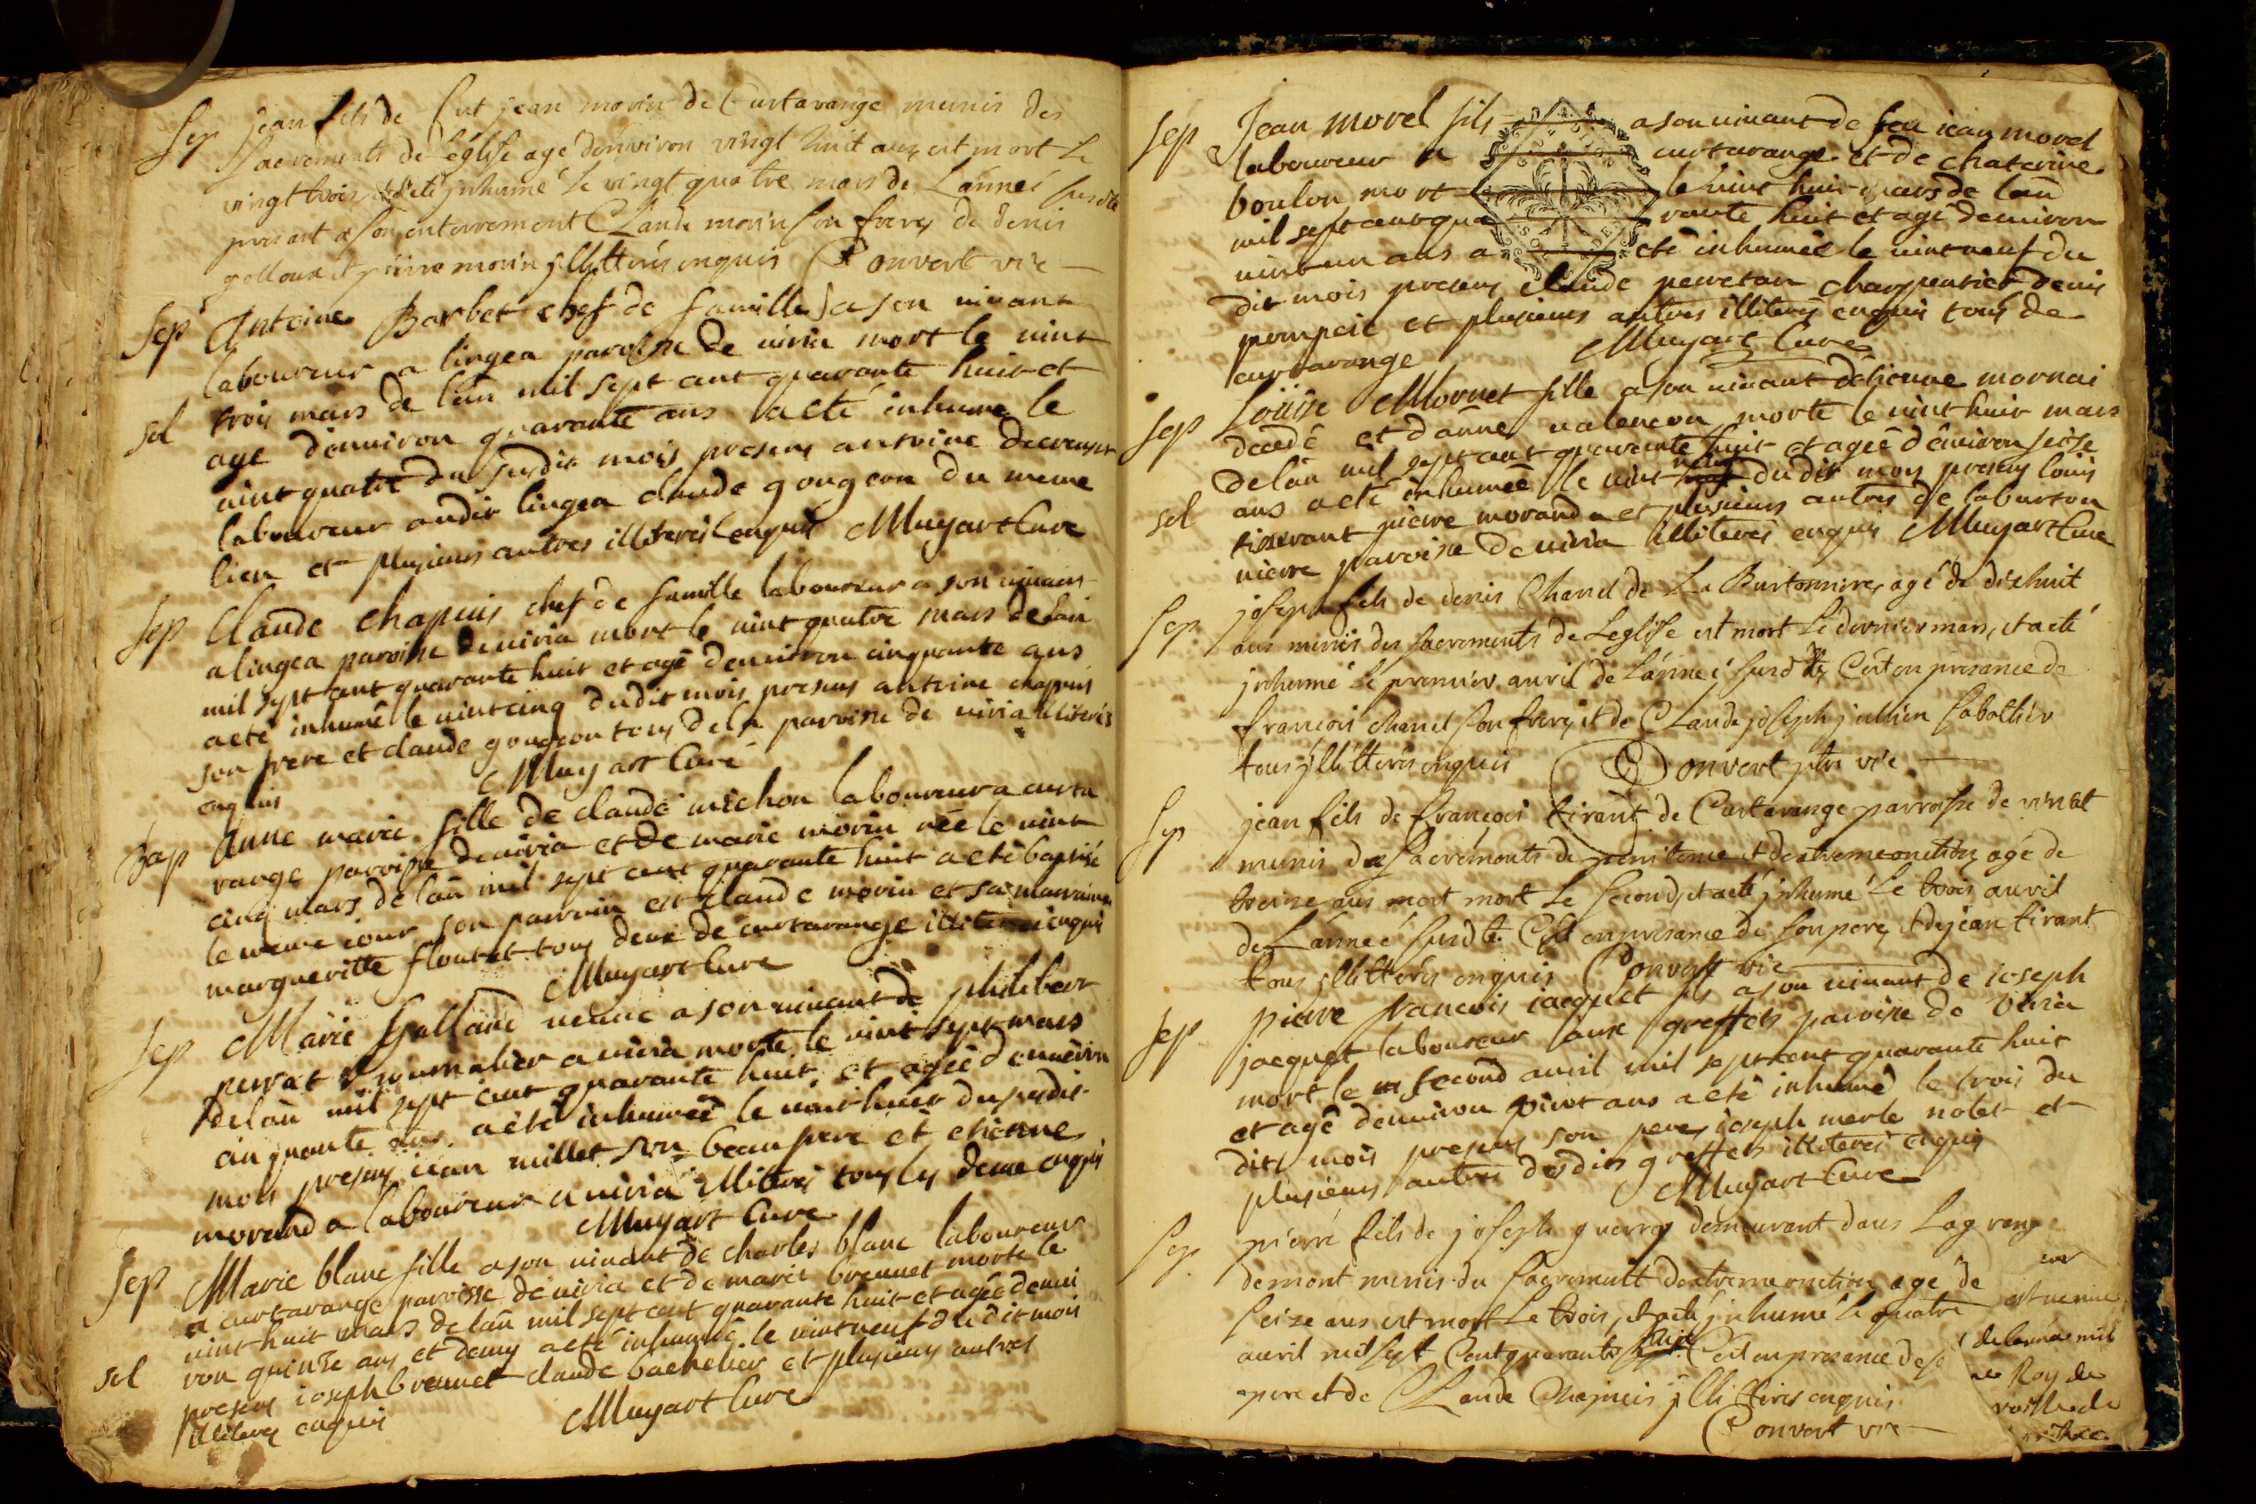 Sep jean fils de fut jean morin de Curtarange munis des
Sacrements de l'église agé d'environ vingt huit ans est mort le
vingt trois et a eté jnhumé le vingt quatre mars de L'année susdte
present a son enterrement Claude morin son frere, de denis
golloux et pierre morin jllitterés enquis Convert vic
Sep Antoine Barbet chef de famille a son vivant
laboureur a lingea paroisse de viria mort le vint
trois mars de l'an mil sept cent quarante huit et
sol agé d'enuiron quarante ans a eté inhumé le
vint quatre du susdit mois presens antoine
laboureur audit lingea claude gougeon du meme
lieu et plusieurs autres illiterés enquis Muyart Curé
Sep Claude chapuis chef de famille laboureur a son vivant
a lingea paroisse de viria mort le vint quatre mars de l'an
mil sept cent quarante huit et agé d'enuiron cinquante ans
a eté inhumé le vint cinq dudit mois presens antoine chapuis
son frere et claude gougeon tous de la paroisse de viria illiterés
enquis Muyart Curé
Bap Anne marie fille de claude michon laboureur a curta
range paroisse de viria et de marie morin née le vint
cinq mars de l'an mil sept cent quarante huit a eté baptisée
le meme jour son parrain est claude morin et sa marraine
margueritte floutet tous deux de curtarange illiterés enquis
Muyart Curé
Sep Marie Galland veuve a son vivant de philibert
perrat journalier a viria morte le vint sept mars
de l'an mil sept cent quarante huit et agée d'enuiron
cinquante ans a eté inhumée le vint huit du susdit
mois presens jean millet son beau pere et etienne
moranda laboureur a viria illiterés tous les deux enquis
Muyart Curé
Sep Marie blanc fille a son vivant de charles blanc laboureur
a curtarange paroisse de viria et de marie brevet morte le
vint huit mars de l'an mil sept cent quarante huit et agée d'enui
ron quinze ans et demy a eté inhumée le vint neuf du dit mois
sol presens joseph brevet claude bachelier et plusieurs autres
illiterés enquis Muyart Curé
Sep Jean morel fils a son vivant de feu jean morel
laboureur a curtarange et de chaterine
boulon mort le vint huit mars de l'an
mil sept cent qua rante huit et agé d'enuiron
vint un ans a eté inhumé le vint neuf du
dit mois presens claude perretan charpentier denis
pompeit et plusieurs autres illiterés enquis tous de
curtarange Muyart Curé
Sep Loüise Mornet fille a son vivant d'etienne mornai
decedé et d'anne valencon morte le vint huit mars
de l'an mil sept cent quarante huit et agée d'enuiron seise
sol ans a eté inhumée le vint neuf dudit mois presens louis
tisserant pierre moranda et plusieurs autres de laburton
niere paroisse de viria illiterés enquis Muyart Curé
Sep joseph fils de denis Chanel de La Burtonniere, agé de dixhuit
ans munis des Sacrements de L'eglise est mort Le dernier mars, et a eté
jnhumé le premier auril de L'année susdte, C'est en presance de
françois chanel son frere, et de Claude joseph julien sabottier
tous jllitterés enquis Convert ptre vic
Sep jean fils de françois tirant de Curtarange parroisse de viriat
munis des Sacrements de penitence et d'extreme onction agé de
treize ans mort mort Le second, et a eté jnhumé Le trois auril
de L'année susdte C'est en presance de son pere, et de jean tirant
tous jllitterés enquis Convert vic
Sep pierre francois jacquet fils a son vivant de joseph
jacquet laboureur aux greffets paroisse de viria
mort le second auril mil sept cent quarante huit
et agé d'enuiron vint ans a eté inhumé le trois du
dit mois presens son pere, joseph merle nolet et
plusieurs autres desdits greffets illiterés enquis
Muyart Curé
Sep pierre fils de joseph guerrey demeurant dans Lagrange
demont munis du sacrement d'extreme onction agé de
seize ans est mort Le trois, et a eté jnhumé le quatre
auril mil sept Cent quarante huit C'est en presance de so
pere et de Claude Chapuis jllitterés enquis
Convert vic
est venue
de lannée mil
Roy de